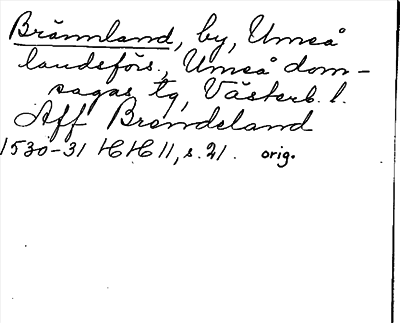 Brännland, by, Umeå
landsförs., Umeå dom-
sagas tg, Västerb. l.
Aff Brendeland
1530-31 HH 11, s. 21. orig.